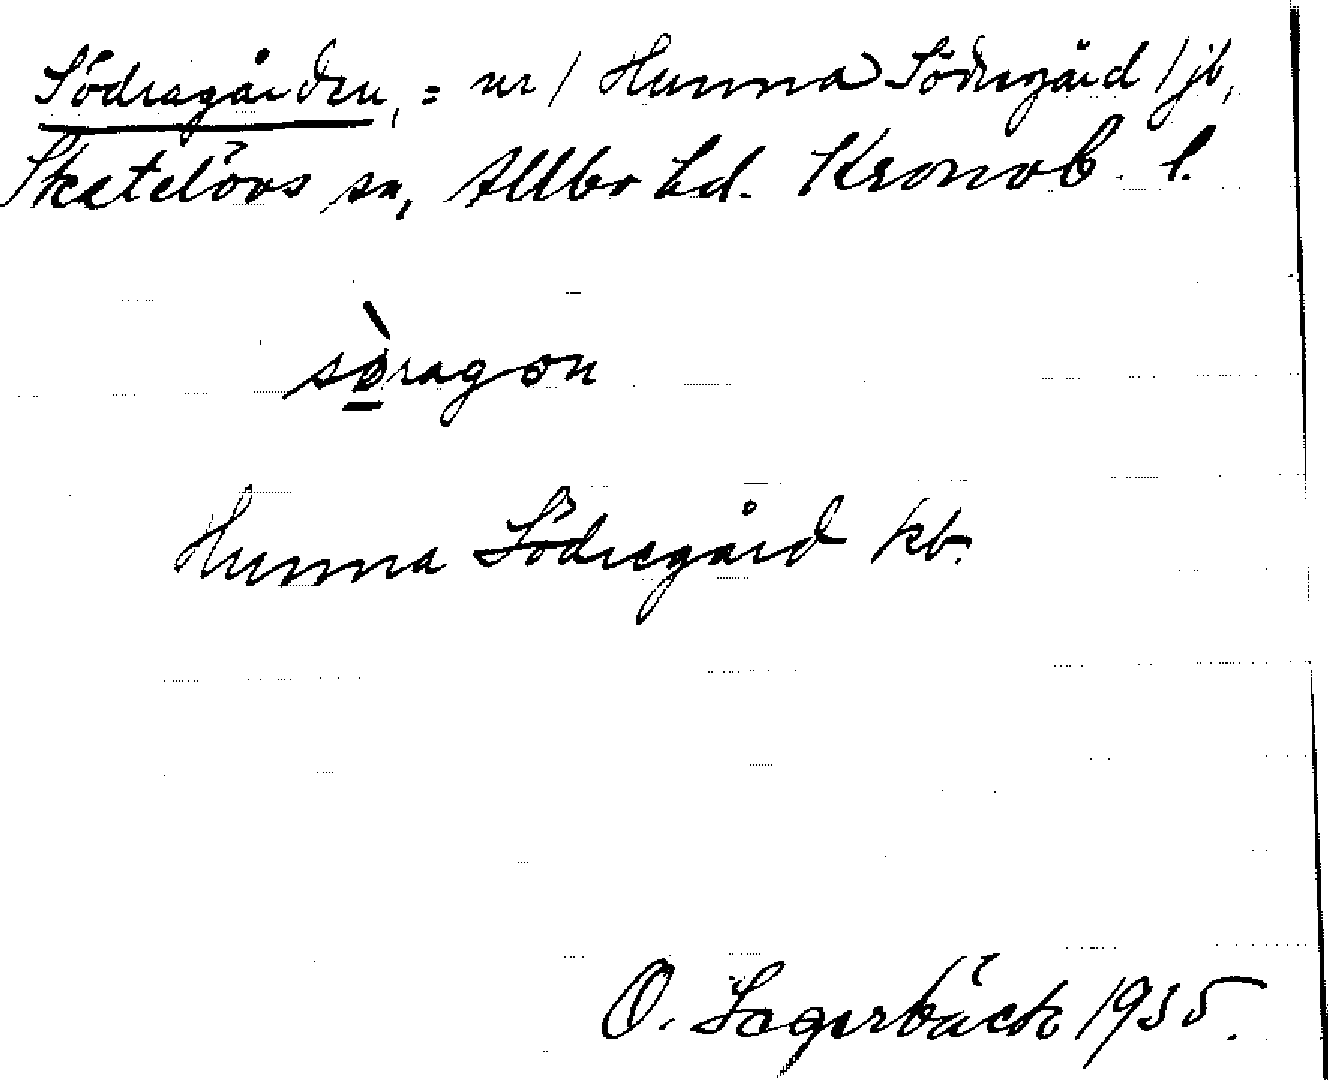 Södragården, = nr 1 Hunna Södregård 1 jb,
Skatelövs sn, Allbo hd. Kronob. l.
sò̠ragon
Hunna Södregård kb.
O. Lagerbäck 1935.